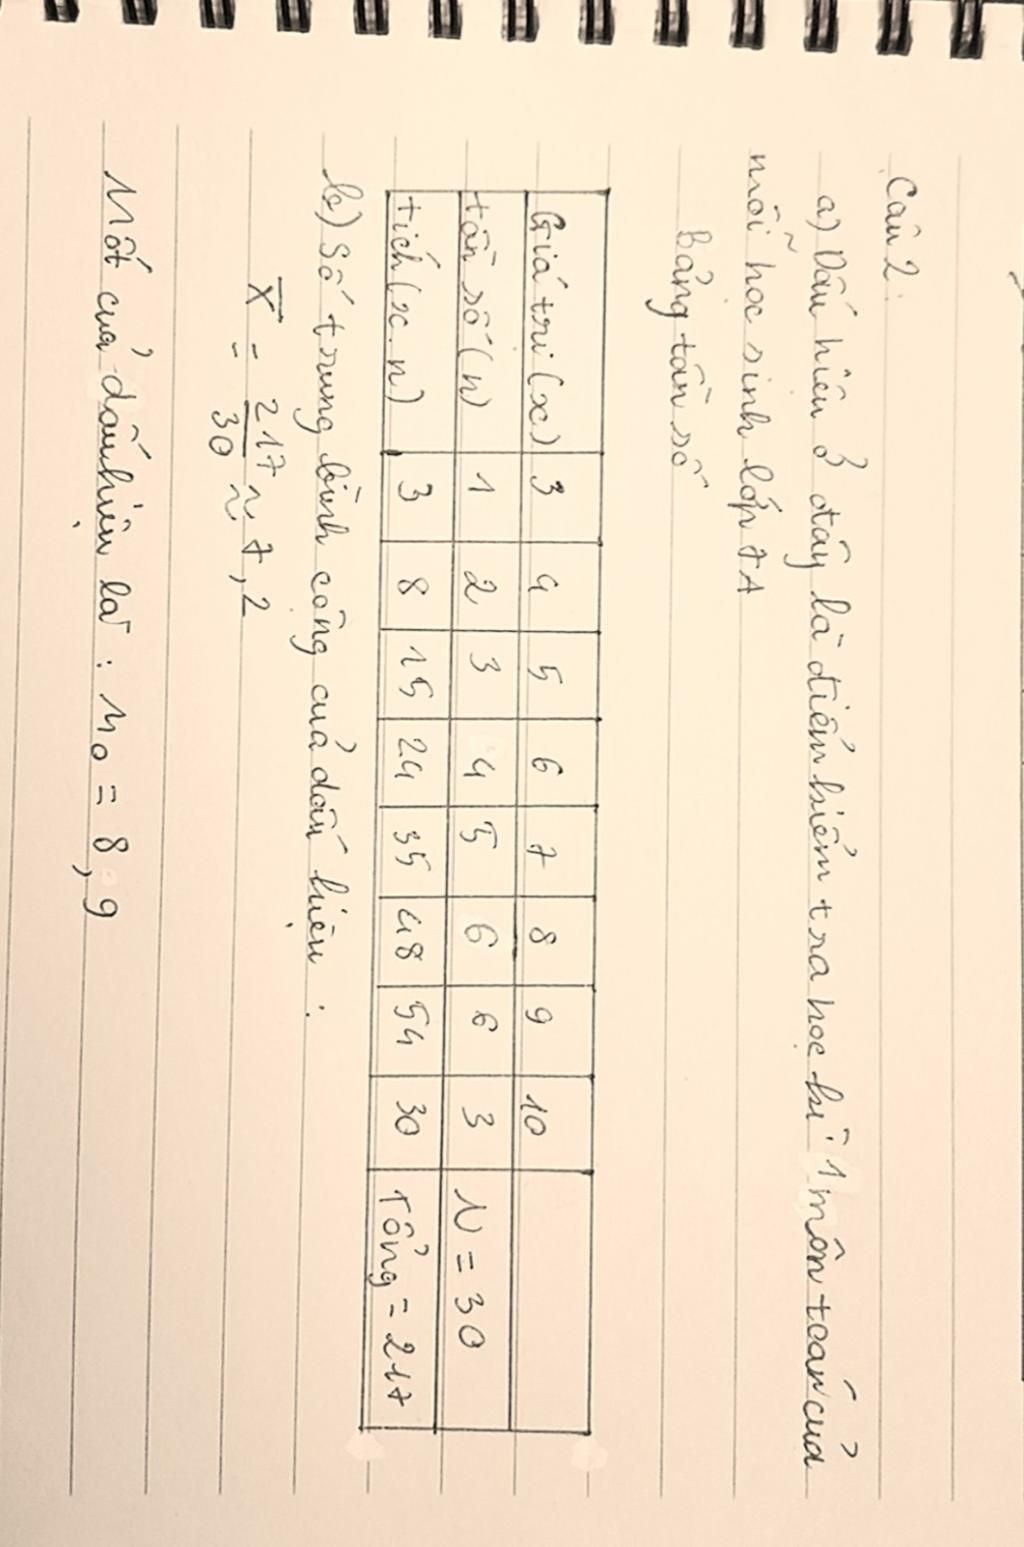 Câu 2:
a) Dấu hiệu ở đây là điểm kiểm tra học kì 1 môn toán của
mỗi học sinh lớp 7A
Bảng tần số
Giá trị (x) 3 4 5 6 7 8 9 10
tần số (n) 1 2 3 4 5 6 6 3 N = 30
tích (x.n) 3 8 15 24 35 48 54 30 Tổng = 217
b) Số trung bình cộng của dấu hiệu :
X̄ = 217/30 ≈ 7,2
Mốt của dấu hiệu là : M₀ = 8, 9